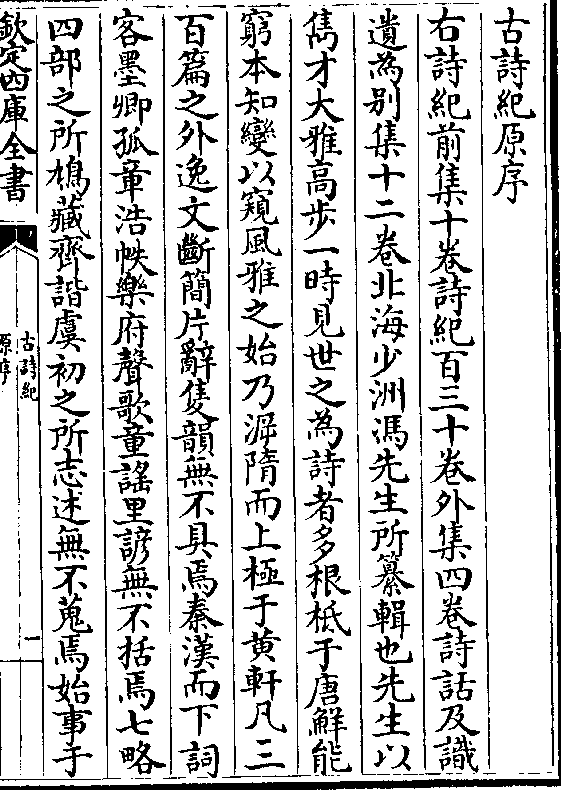 古詩紀原序
右詩紀前集十卷詩紀百三十卷外集四卷詩話及識
遺為別集十二卷北海少洲馮先生所纂輯也先生以
雋才大雅高步一時見世之為詩者多根柢于唐鮮能
窮本知變以窺風雅之始乃溯隋而上極于黃軒凡三
百篇之外逸文斷簡片辭隻韻無不具焉秦漢而下詞
客墨卿孤章浩帙樂府聲歌童謠里諺無不括焉七略
四部之所鳩藏齊諧虞初之所志述無不蒐焉始事于
欽定四庫全書
古詩紀
原序
一